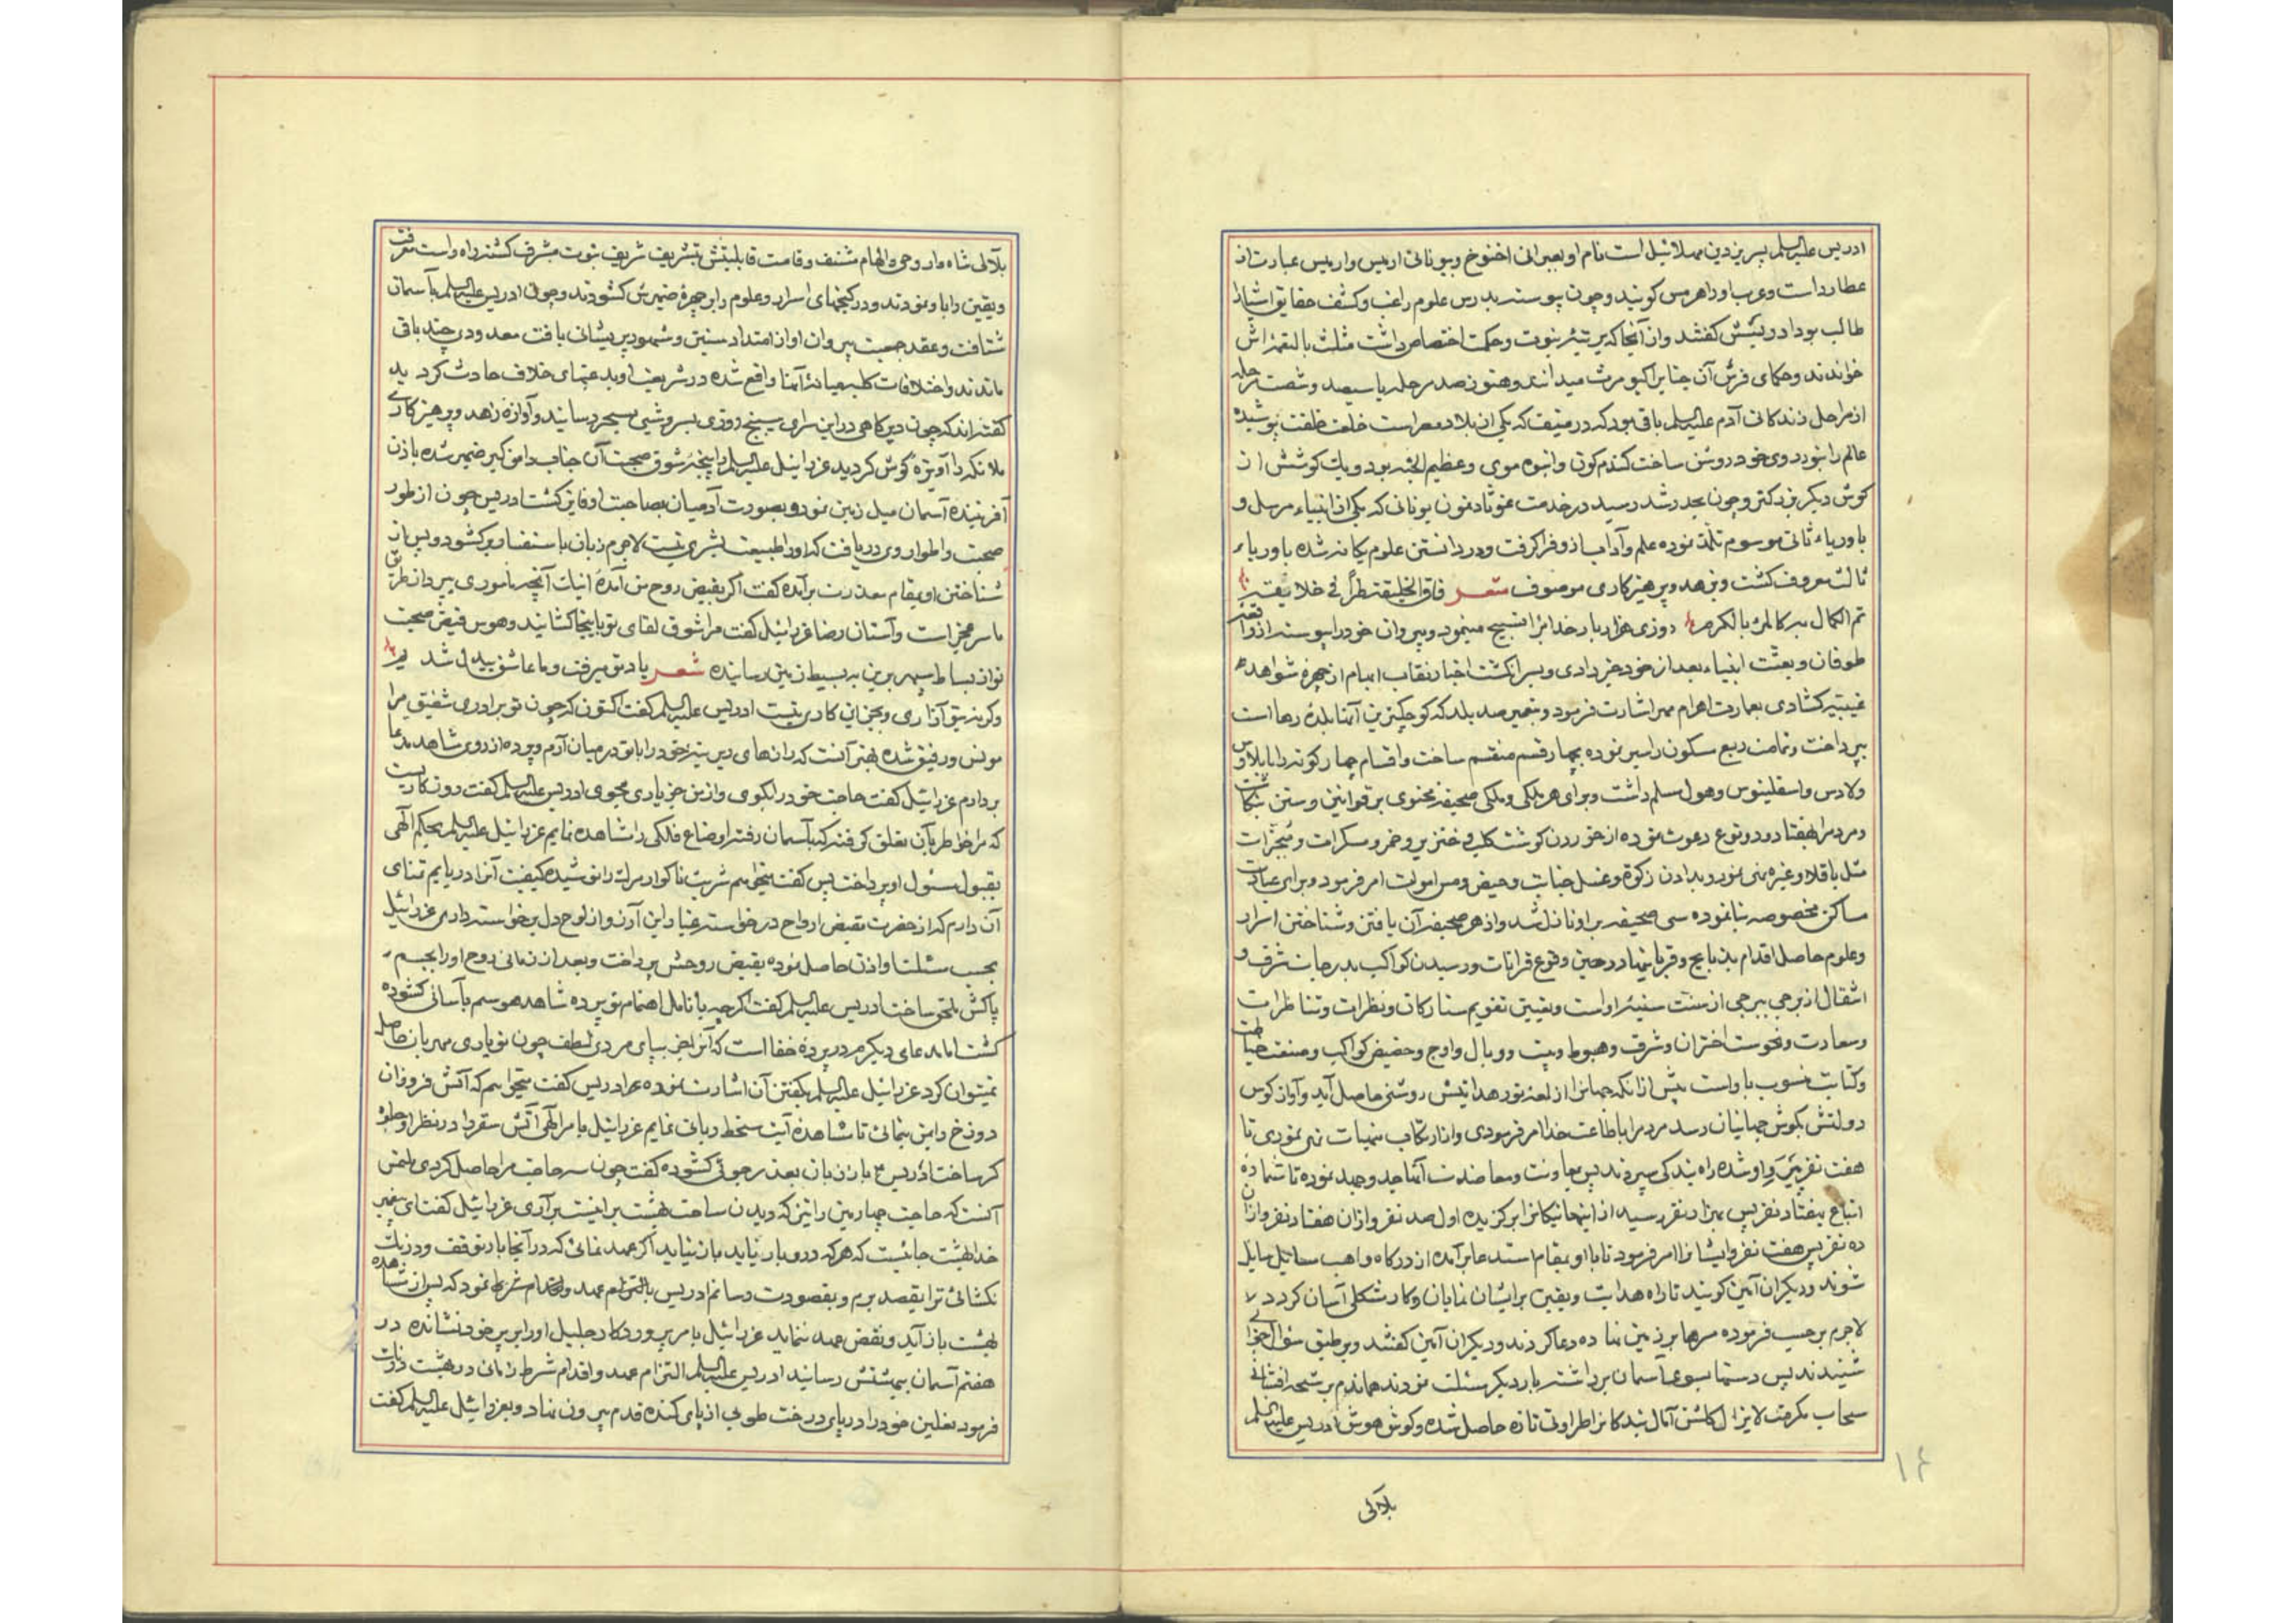 ادریس علیه السلم پسر یزد بن مهلائیل است نام او بعبرانی اخنوخ و بیونانی ارمیس و ارمیس عبارت از
عطارد است و عرب او را هرمس کویند و چون پیوسته بدرس علوم راغب و کشف حقایق اشیا را
طالب بود ادریسش کفتند و از آنجا که بر تبۀ نبوت و حکمت اختصاص داشت مثلث بالنعمة اش
خواندند و حکمای فرس آن جناب را کیومرث میدانند و هنوز صد مرحله یا سیصد و شصت مرحله
از مراحل زندکانی آدم علیه السلم باقی بود که در منیف که یکی از بلاد مصر است خلعت خلقت پوشیده
عالم را بنور روی خود روشن ساخت کندم کون و انبوه موی و عظیم الجثه بود و یک کوشش از
کوش دیکر بزرکتر و چون بحد رشد رسید در خدمت غوثاذیمون یونانی که یکی از انبیاء مرسل و
باوریاء ثانی موسوم تلمذ نموده علم و آداب از و فرا کرفت و در دانستن علوم یکانه شده باوریاء
ثالث معروف کشت و بزهد و پرهیزکاری موصوف شعر فاق الخلیقة طراً فی خلایقه
تم الکمال به کالمرء بالکرم روزی هزار بار خدایرا تسبیح مینمود و پیروان خود را پیوسته از واقعۀ
طوفان و بعثت انبیاء بعد از خود خبر دادی و بسر انکشت اخبار نقاب ابهام از چهرۀ شواهد
غیبیه کشادی بعمارت اهرام مصر اشارت فرمود و بتعمیر صد بلد که کوچکترین آنها بلدۀ رها است
پرداخت و تمامت ربع مسکون را سیر نموده بچهار قسم منقسم ساخت و اقسام چهار کونه را بایلاوس
ولاوس و اسقلینوس و هول مسلم داشت و برای هر ملکی و ملکی صحیفۀ محتوی بر قوانین و سنن نکاشت
و مردم را بهفتاد و دو نوع دعوت نموده از خوردن کوشت کلب و خنزیر و خمر و مسکرات و مبخرات
مثل باقلا و غیره نهی نمود و بدادن زکوة و غسل جنابت و حیض و مس اموات امر فرمود و برای عبادت
مساکن مخصوصه بنا نموده سی صحیفه بر او نازل شد و از هر صحیفه آن یافتن و شناختن اسرار
و علوم حاصل اقدام بذبایح و قربانیها در حین وقوع قرانات و رسیدن کواکب بدرجات شرف و
انتقال از برجی ببرجی از سنت سنیۀ او است و تعیین تقویم ستارکان و نظرات و تناظرات
و سعادت و نحوست اختران و شرف و هبوط و بیت و وبال و اوج و حضیض کواکب و صنعت خیاطت
و کتابت منسوب باو است پیش از انکه جهانرا از لمعۀ نور هدایتش روشنی حاصل آید و آواز کوس
دولتش بکوش جهانیان رسد مردم را باطاعت خدا امر فرمودی و از ارتکاب منهیات نهی نمودی تا
هفت نفر پیرو او شده راه بندکی سپردند پس بمعاونت و معاضدت آنها جد و جهد نموده تا شمارۀ
اتباع بهفتاد نفر پس بهزار نفر رسید از اینها نیکانرا برکزیده اول صد نفر و از ان هفتاد نفر و از ان
ده نفر پس هفت نفر و ایشانرا امر فرمود تا با او بمقام استدعا برآمده از درکاه واهب مسائل سایل
شوند و دیکران آمین کویند تا راه هدایت و یقین بر ایشان نمایان و کار مشکل آسان کردد
لاجرم بر حسب فرموده سرها بر زمین نهاده دعا کردند و دیکران آمین کفتند و بر طبق سؤال جوابی
شنیدند پس دستها بسوی آسمان برداشته بار دیکر مسئلت نمودند هماندم برشحه افشانی
سحاب مکرمت لایزال کلشن آمال بندکانرا طراوتی تازه حاصل شده و کوش هوش ادریس علیه السلم
۱۴
بلآلی
بلآلی شاهوار وحی و الهام مشنف و قامت قابلیتش بتشریف شریف نبوت مشرف کشته راه راست معرفت
و یقین را باو نمودند و در کنجهای اسرار و علوم را بر چهرۀ ضمیرش کشودند و چون ادریس علیه السلم بآسمان
شتافت و عقد جمعیت پیروان او از امتداد سنین و شهور پریشانی یافت معدودی چند باقی
ماندند و اختلافات کلیه میانۀ آنها واقع شده در شریعت او بدعتهای خلاف حادث کردید
کفته اند که چون دیرکاهی در این سرای سپنج روزی بسر و شبی بسحر رسانید و آوازه زهد و پرهیزکاری
ملائکه را آویزۀ کوش کردید عزرائیل علیه السلم را پنجۀ شوق صحبت آن جناب دامن کیر ضمیر شده باذن
آفرینندۀ آسمان میل زمین نمود و بصورت آدمیان بمصاحبت او فایز کشت ادریس چون از طور
صحبت و اطوار وی دریافت که او را طبیعت بشری نیست لاجرم زبان باستفسار برکشود و پس از
شناختن او بمقام معذرت برآمده کفت اکر بقبض روح من آمدۀ اینک آنچه ماموری بپرداز طریق
ما سر عجز است و آستان رضا عزرائیل کفت مرا شوق لقای تو باینجا کشانید و هوس فیض صحبت
تو از بساط سپهر برین به بسیط زمین رسانیده شعر یاد تو میرفت و ما عاشق بیدل شدیم
و کرنه بیتو آزاری و بجز این کاری نیست ادریس علیه السلم کفت اکنون که چون تو برادری شفیق مرا
مونس و رفیق شده بهتر آنست که رازهای دیرینۀ خود را با تو در میان آرم و پرده از روی شاهد مدعا
بردارم عزرائیل کفت حاجت خود را بکوی و از من جز یاری مجوی ادریس علیه السلم کفت روزکاریست
که مرا خواطر بآن تعلق کرفته که بآسمان رفته اوضاع فلکی را مشاهده نمایم عزرائیل علیه السلم بحکم الهی
بقبول مسئول او پرداخت پس کفت میخواهم شربت ناکوار مرک را نوشیده کیفیت آنرا دریابم تمنای
آن دارم که از حضرت بقبض ارواح درخواسته بجسب
بحسب مسئلت او اذن حاصل نموده بقبض روحش پرداخت و بعد از زمانی روح او را بجسم
پاکش ملحق ساخت ادریس علیه السلم کفت اکرچه بانامل اهتمام تو پرده شاهد هوسم بآسانی کشوده
کشت اما مدعای دیکرم در پردۀ خفا است که آنرا جز بپای مردی لطف چون تو یاری مهربان حاصل
نمیتوان کرد عزرائیل علیه السلم بکفتن آن اشارت نموده ادریس کفت میخواهم که آتش فروزان
دوزخ را بمن بنمائی تا مشاهدۀ آیت سخط ربانی نمایم عزرائیل بامر الهی آتش سقر را در نظر او جلوه
کر ساخت ادریس باز زبان بعذر جوئی کشوده کفت چون سه حاجت مرا حاصل کردی ملتمس
آنست که حاجت چهارمین را نیز که دیدن ساحت بهشت برینست برآری عزرائیل کفت ای پیغمبر
خدا بهشت جائیست که هر که درو بار یابد باز نیاید اکر عهد نمائی که در آنجا بار توقف و درنک
نکشائی ترا بقصد برم و بمقصودت رسانم ادریس بالتزام عهد و اقدام شرط نمود که پس از مشاهدۀ
بهشت باز آید و نقض عهد ننماید عزرائیل بامر پروردکار جلیل او را بر پر خود نشانده در
هفتم آسمان ببهشتش رسانید ادریس علیه السلم التزام عهد و اقدام شرط زمانی در بهشت درنک
فرمود نعلین خود را در پای درخت طوبی از پای کنده قدم بیرون نهاد و بعزرائیل علیه السلم کفت